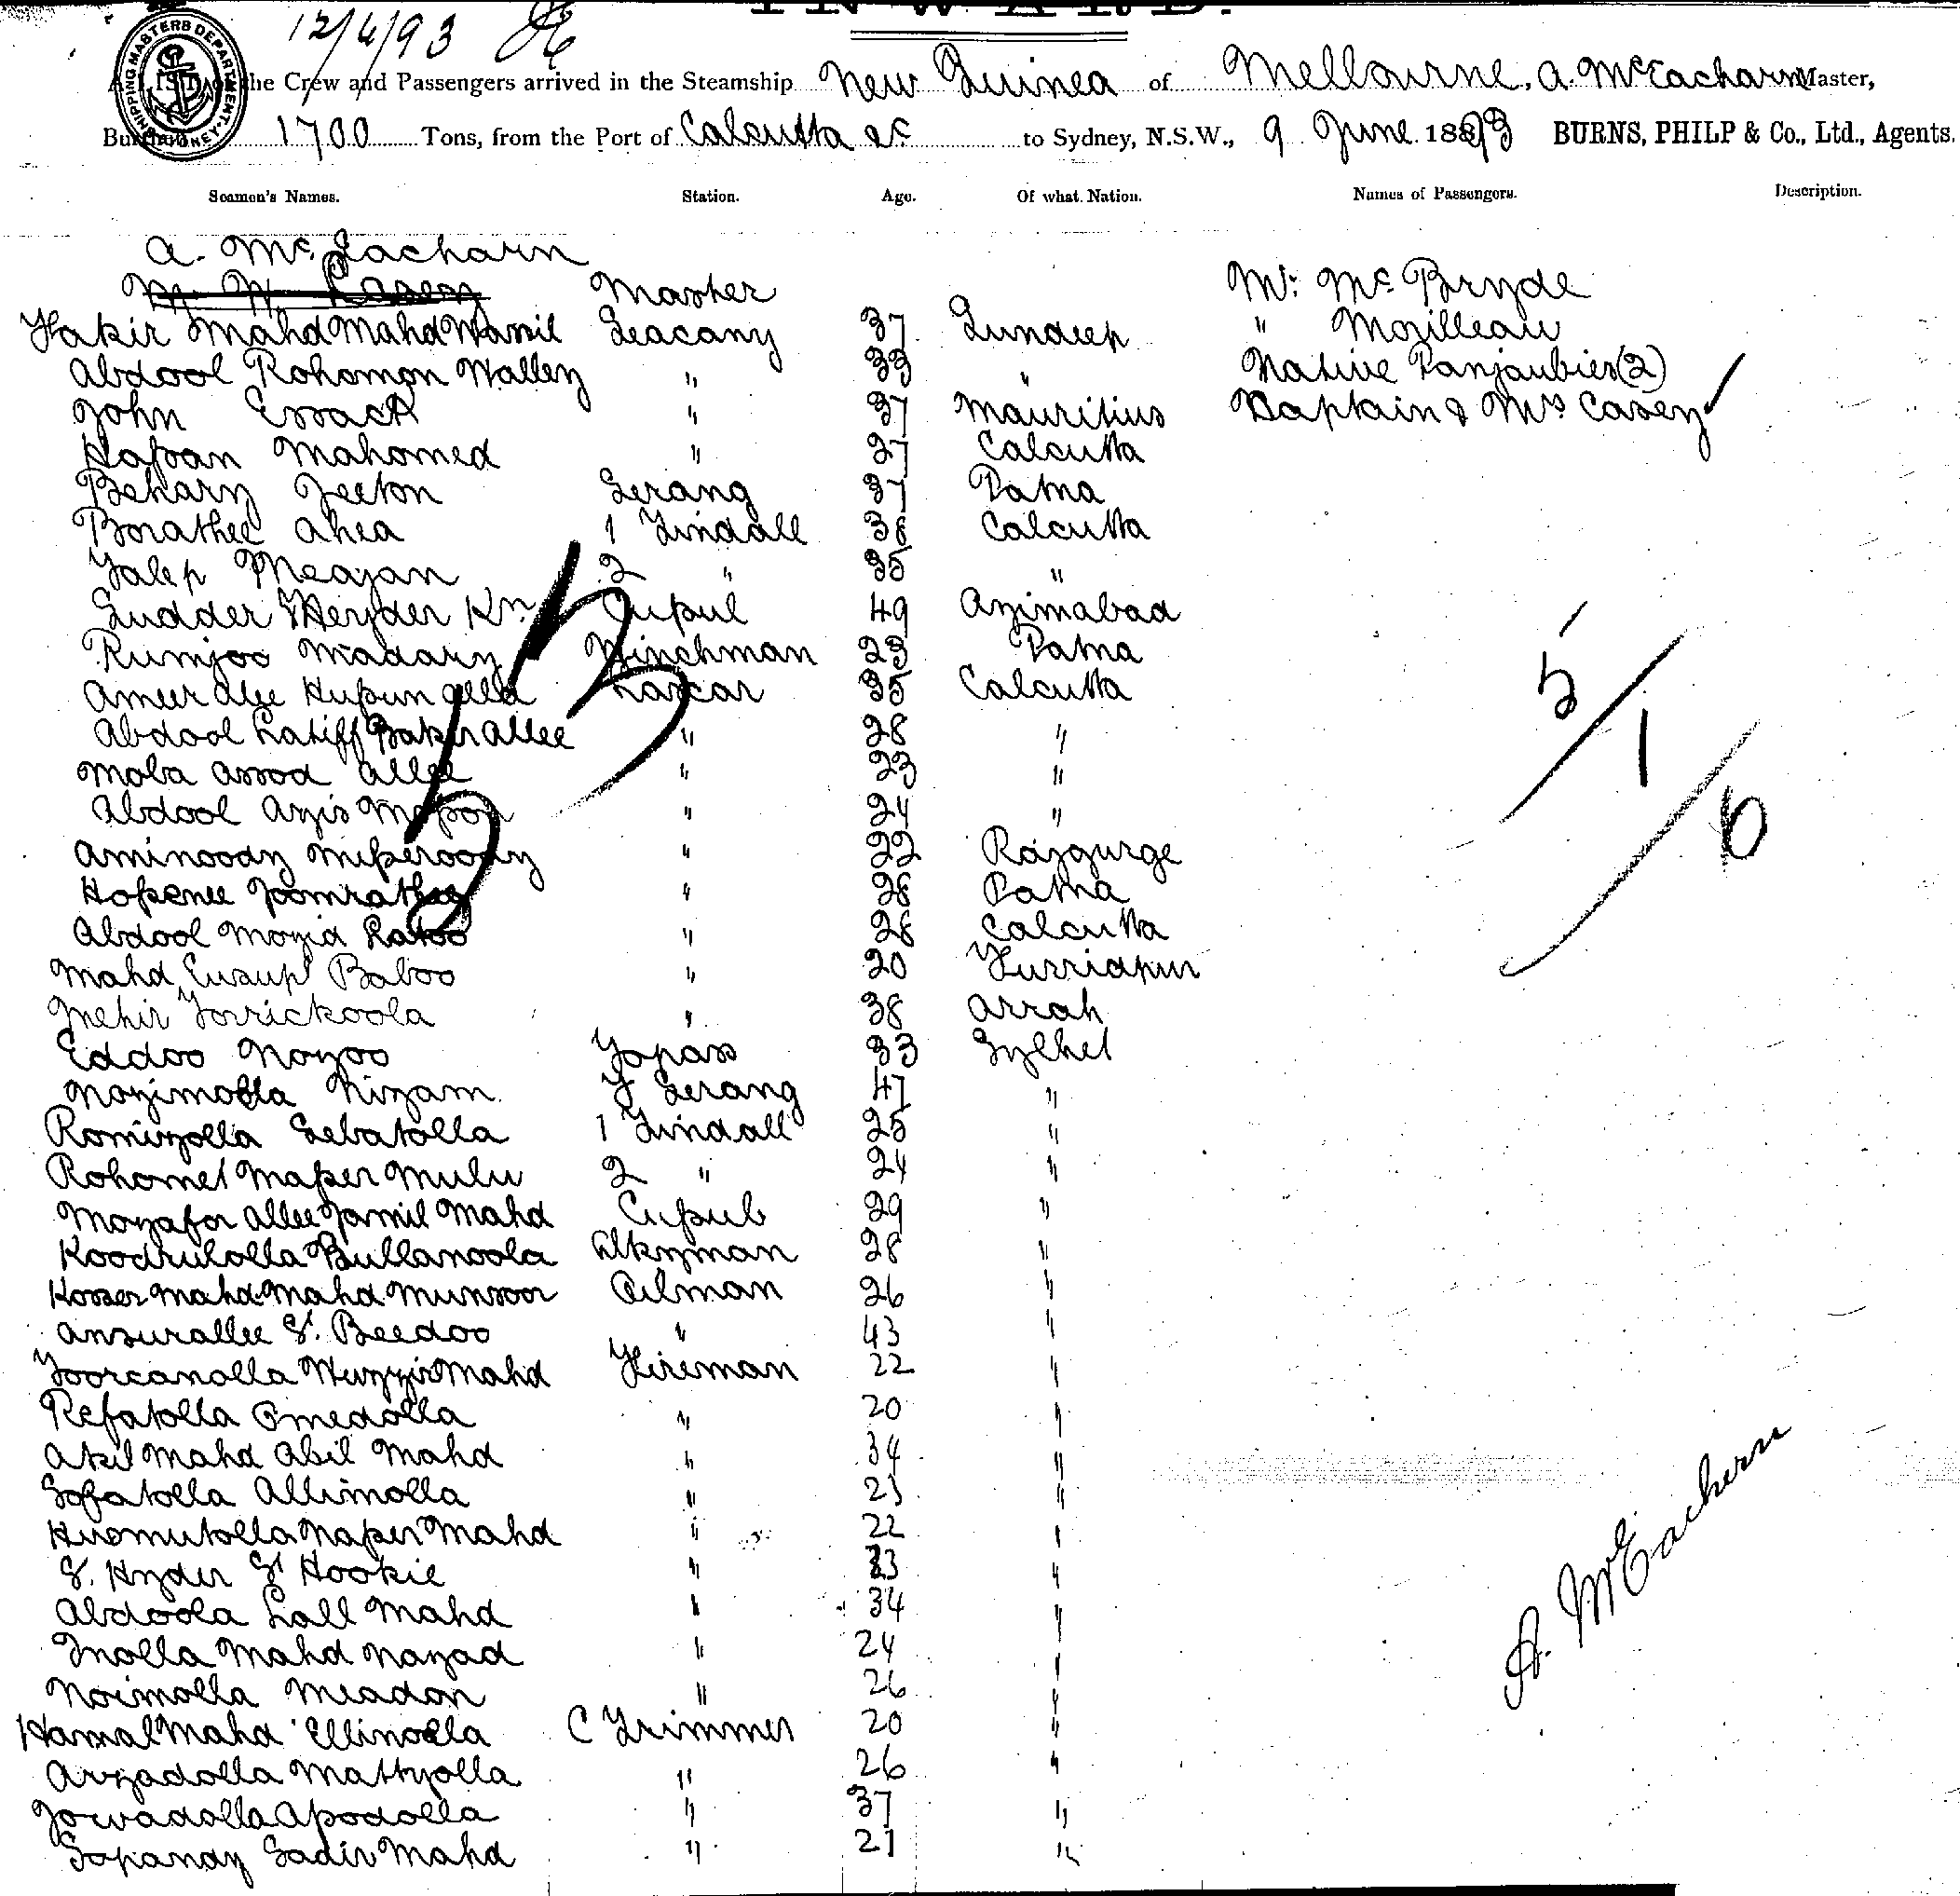 INWARD.
12/6/93
SHIPPING MASTERS DEPARTMENT SYDNEY
A LIST of the Crew and Passengers arrived in the Steamship New Guinea of Melbourne, A. McEacharn Master,
Burthen 1700 Tons, from the Port of Calcutta &c to Sydney, N.S.W., 9 June 1893 BURNS, PHILP & Co., Ltd., Agents.
Seamen's Names. Station. Age. Of what Nation. Names of Passengers. Description.
A. McEacharn
Casey Master Mr. McBryde
Fakir Mahd Mahd Wasil Seacany 37 Sundeep " Morilleau
Abdool Rohomon Walley " 33 " Native Panjaubies (2)
John Essack " 37 Mauritius Captain & Mrs Casey
Hassan Mahomed " 27 Calcutta
Behary Jeeton Serang 37 Patna
Borathee Ahea 1 Tindall 38 Calcutta
Talep Meajan 2 " 35 "
Sudder Heyder Kn Cupul 49 Azimabad
Rumjoo Madary Winchman 23 Patna
Ameer Alee Hupun Lascar 35 Calcutta
Abdool Latiff Bakir Allee " 28 "
Moba Assod Allee " 23 "
Abdool Azis " 24 "
Aminoody " 22 Raygurge
Hopenee " 28 Patna
Abdool Mozid Ratoo " 28 Calcutta
Mahd Eusuph Baboo " 20 Furridpur
Mehir Torrickoola " 38 Arrah
Eddoo Nozoo Topass 33 Sylhet
Nazimolla Nizam F Serang 47 "
Romizolla Sebatolla 1 Tindall 25 "
Rohomet Maper Mulu 2 " 24 "
Mozafor Allee Jamil Mahd Cupub 29 "
Koodrutolla Bullanoola 28 "
Kosser Mahd Mahd Munsoor Oilman 26 "
Ansurallee S. Beedoo " 43 "
Toorcanolla Wuzzir Mahd Fireman 22 "
Refatolla Omedolla " 20 "
Akil Mahd Abil Mahd " 34 "
Sofatolla Allimolla " 23 "
Huomutolla Naper Mahd " 22 "
S. Hyder S. Hookie " 23 "
Abdoola Lall Mahd " 34 "
Inolla Mahd Nazad " 24 "
Noimolla Meadon " 26 "
Hamal Mahd Ellinolla C Trimmer 20 "
Arzadolla Mattyolla " 26 "
Jowadolla Apodolla " 37 "
Sopanay Sadir Mahd " 21 "
53
5
5/1/6
A. McEachern